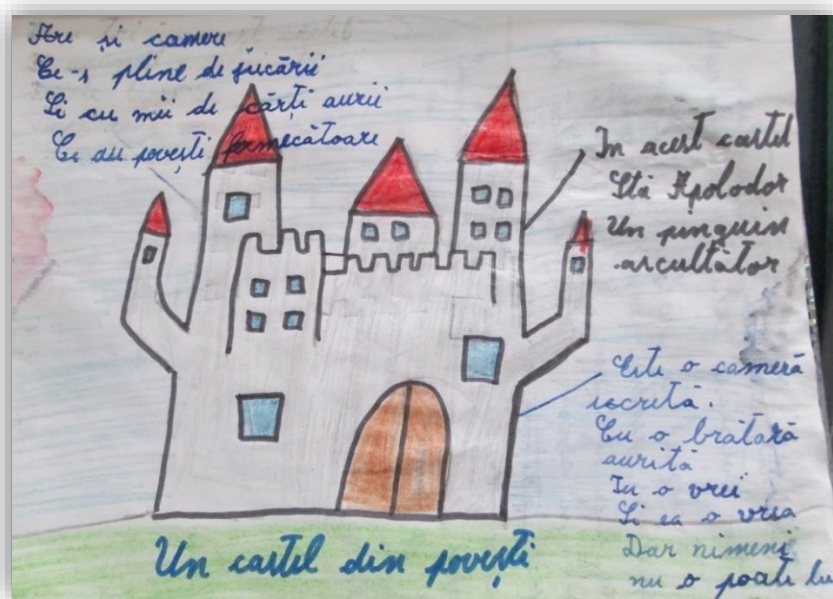 Are și camere
Ce-s pline de jucării
Și cu mii de cărți aurii
Ce au povești fermecătoare
In acest castel
Stă Apolodor
Un pinguin
ascultător
Este o cameră
secretă.
Cu o brățară
aurită
Tu o vrei
Și ea o vrea
Dar nimeni
nu o poate
Un castel din povești